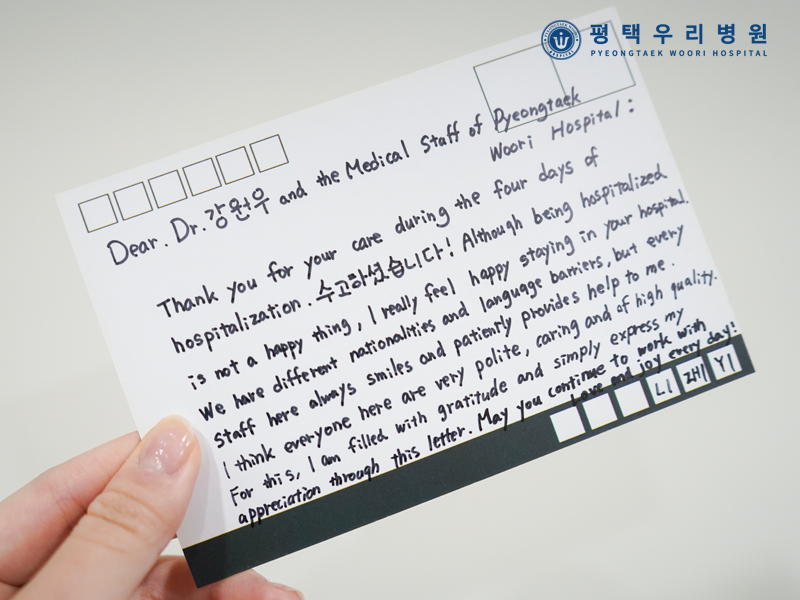 평택우리병원
PYEONGTAEK WOORI HOSPITAL
Dear. Dr. 강원우 and the Medical Staff of Pyeongtaek
Woori Hospital :
Thank you for your care during the four days of
hospitalization. 수고하셨습니다! Although being hospitalized
is not a happy thing, I really feel happy staying in your hospital.
We have different nationalities and language barriers, but every
staff here always smiles and patiently provides help to me.
I think everyone here are very polite, caring and of high quality.
For this, I am filled with gratitude and simply express my
appreciation through this letter. May you continue to work with
Love and joy every day!
LI ZEHI YI